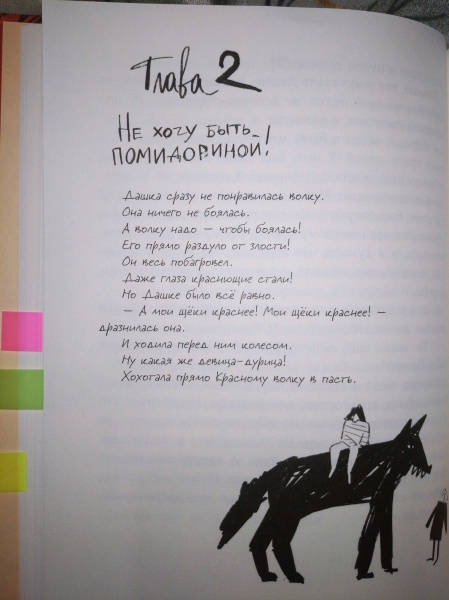 Глава 2
Не хочу быть
помидориной!
Дашка сразу не понравилась волку.
Она ничего не боялась.
А волку надо — чтобы боялась!
Его прямо раздуло от злости!
Он весь побагровел.
Даже глаза краснющие стали!
Но Дашке было всё равно.
— А мои щёки краснее! Мои щёки краснее! —
дразнилась она.
И ходила перед ним колесом.
Ну какая же девица-дурица!
Хохотала прямо Красному волку в пасть.